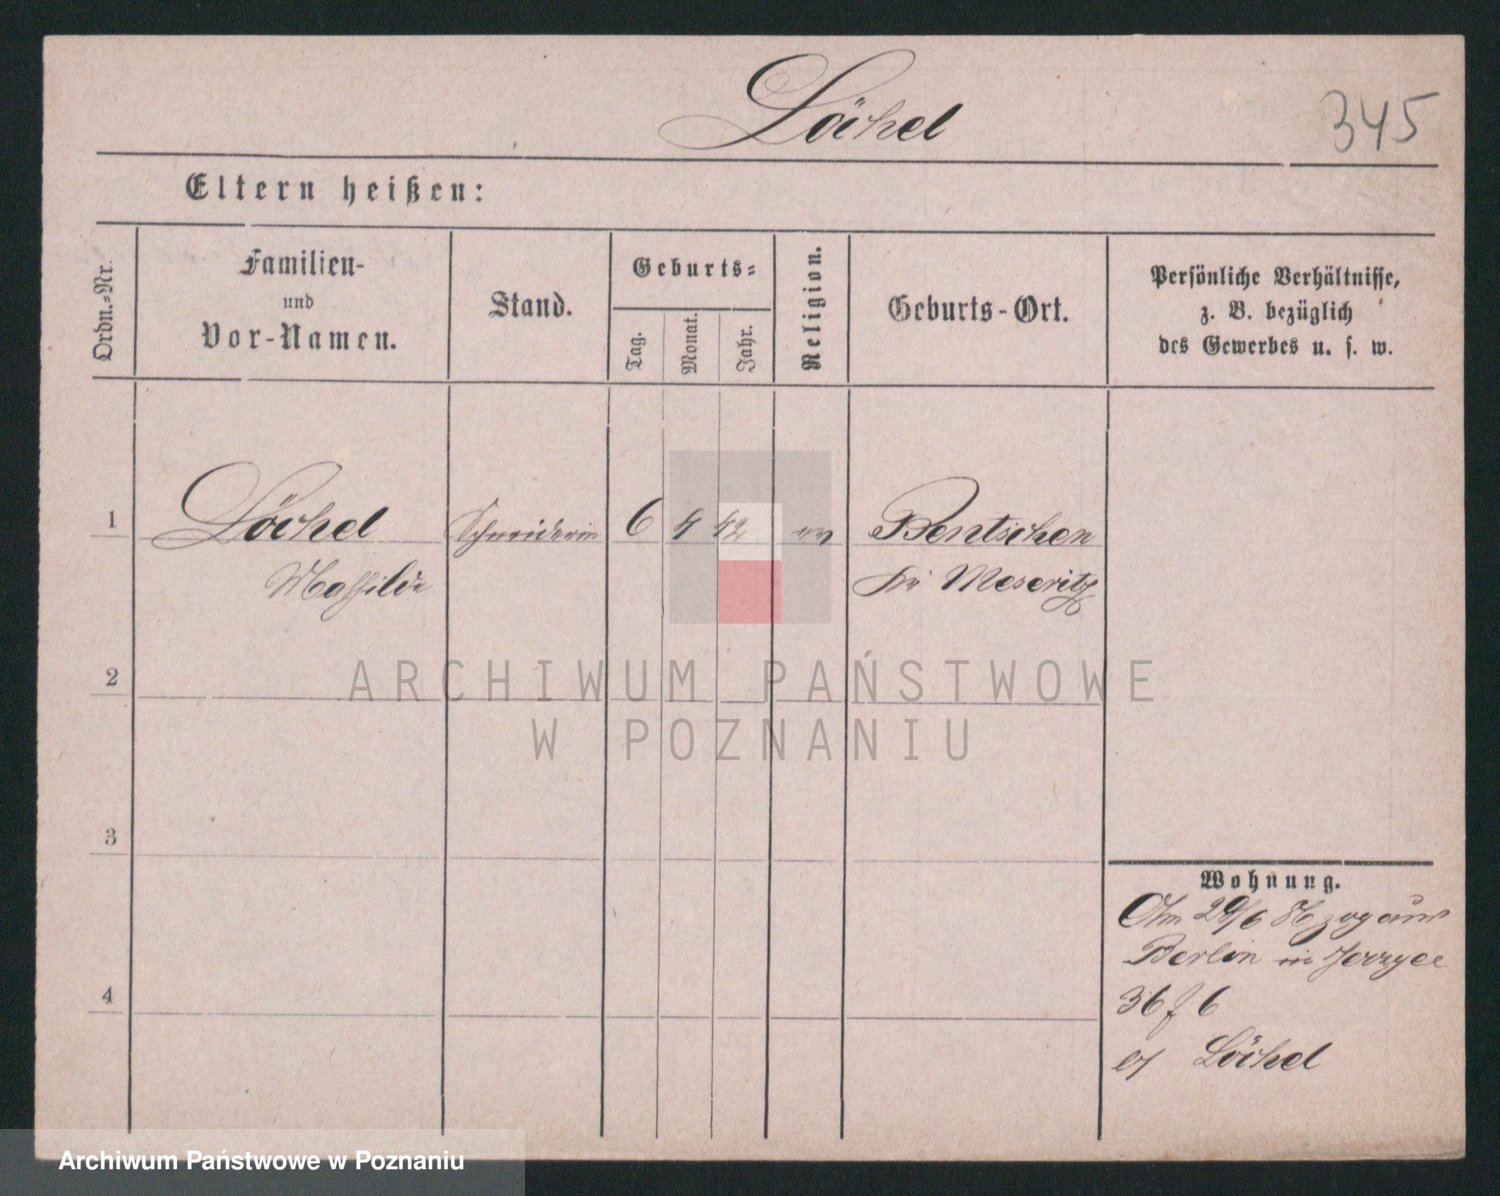 Löchel
345
Eltern heißen:
Ordn.-Nr.
Familien-
und
Vor-Namen.
Stand.
Geburts-
Tag.
Monat.
Jahr.
Religion.
Geburts-Ort.
Persönliche Verhältnisse,
z. B. bezüglich
des Gewerbes u. s. w.
1
Löchel
Mathilde
Schneiderin
6
4
42
ev
Bentschen
Kr Meseritz
2
3
4
Wohnung.
Am 29/6 zog aus
Berlin in Jerzyce
36 f 6
Löchel
ARCHIWUM PAŃSTWOWE
W POZNANIU
Archiwum Państwowe w Poznaniu